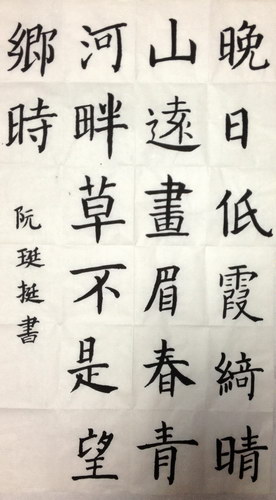 晚日低霞綺晴
山遠畫眉春青
河畔草不是望
鄉時
阮珽挺書